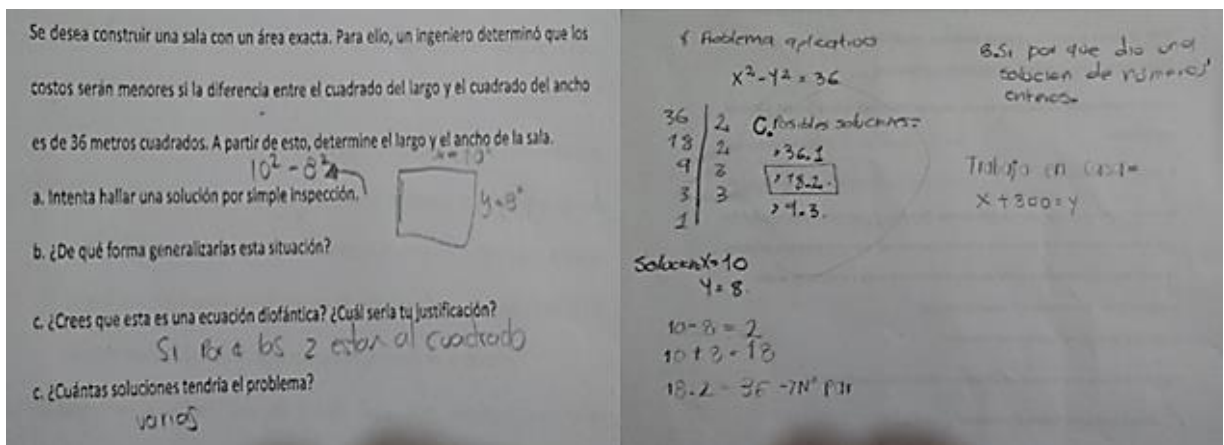 Se desea construir una sala con un área exacta. Para ello, un ingeniero determinó que los
costos serán menores si la diferencia entre el cuadrado del largo y el cuadrado del ancho
es de 36 metros cuadrados. A partir de esto, determine el largo y el ancho de la sala.
10² - 8²
a. Intenta hallar una solución por simple inspección.
b. ¿De qué forma generalizarías esta situación?
c. ¿Crees que esta es una ecuación diofántica? ¿Cuál sería tu justificación?
Si al cuadrado
c. ¿Cuántas soluciones tendría el problema?
varios
Problema aplicativo
x² - y² = 36
36 | 2
18 | 2
9 | 3
3 | 3
1
C. Posibles soluciones:
36.1
18.2.
B. Si por que dio una
solucion de números
enteros.
Trabajo en casa=
x + 300 = y
Solucion x = 10
y = 8.
10 - 8 = 2
10 + 8 = 18
18.2 = 36 → N° par